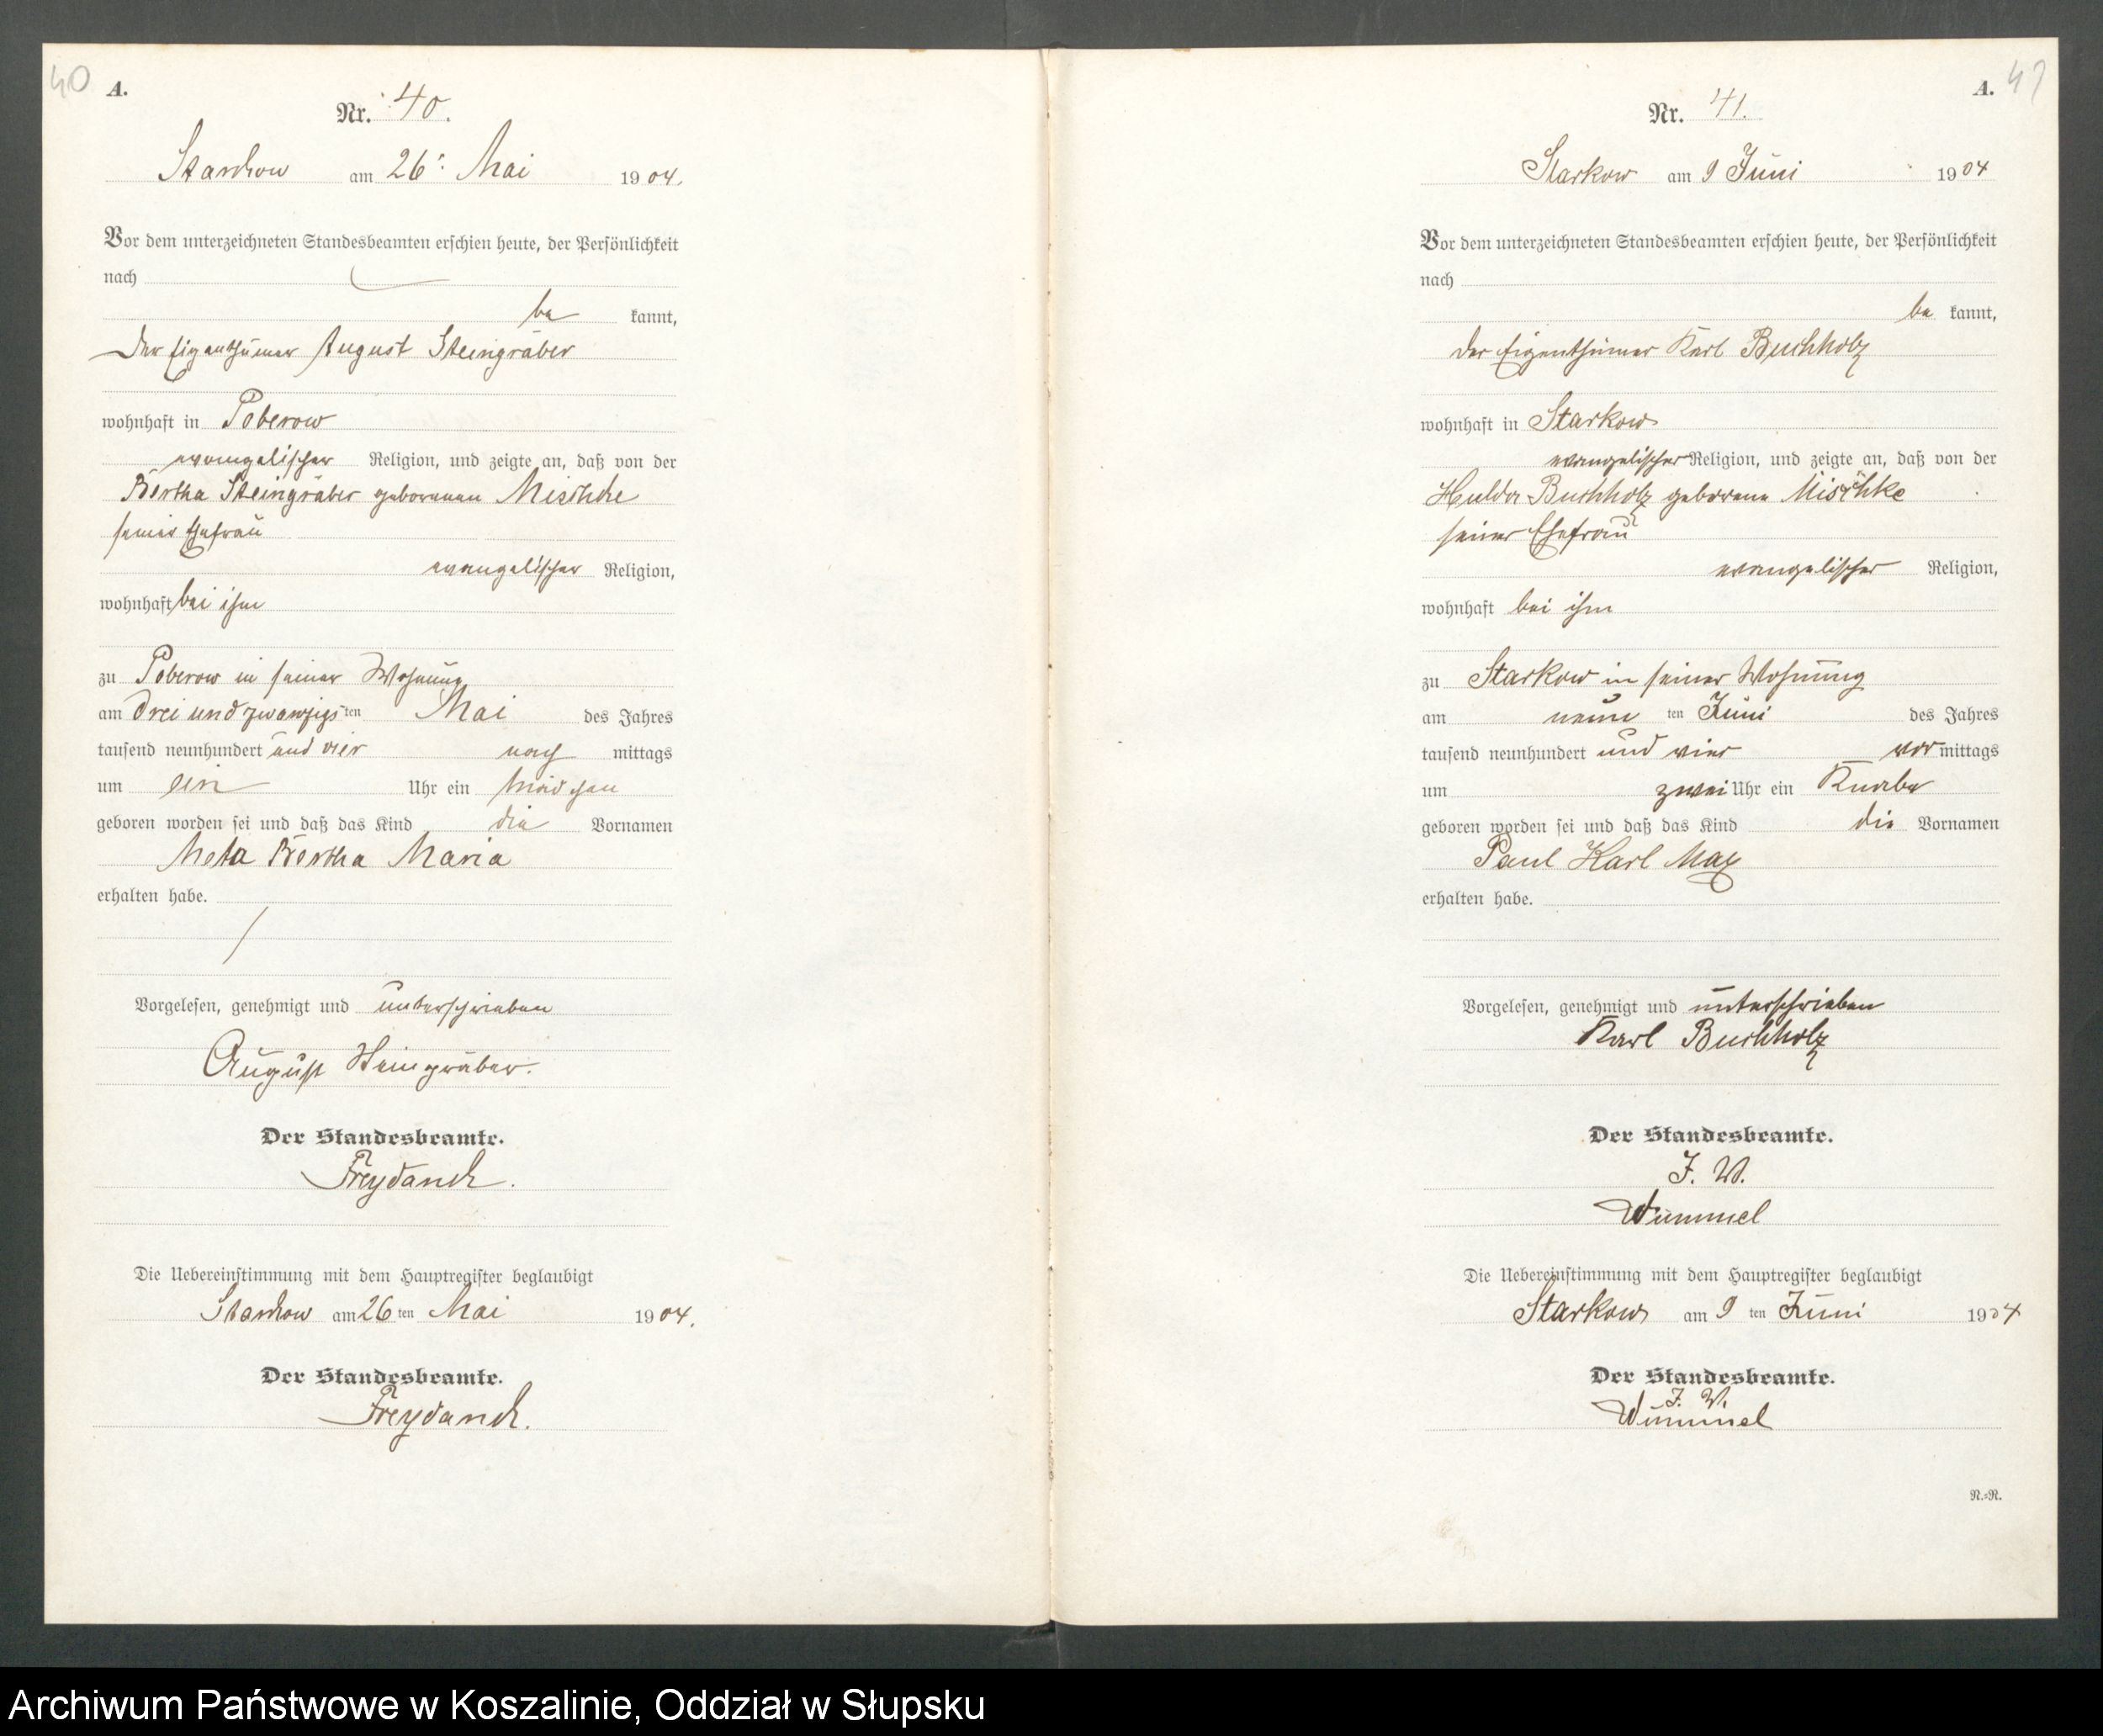 40
A.
Nr. 40.
Starckow am 26. Mai 1904.
Vor dem unterzeichneten Standesbeamten erschien heute, der Persönlichkeit
nach
be kannt,
der Eigenthümer August Steingräber
wohnhaft in Poberow
evangelischer Religion, und zeigte an, daß von der
Bertha Steingräber geborenen Mischke
seiner Ehefrau
evangelischer Religion,
wohnhaft bei ihm
zu Poberow in seiner Wohnung
am drei und zwanzigsten Mai des Jahres
tausend neunhundert und vier nach mittags
um ein Uhr ein Mädchen
geboren worden sei und daß das Kind die Vornamen
Meta Bertha Maria
erhalten habe.
Vorgelesen, genehmigt und unterschrieben
August Steingräber.
Der Standesbeamte.
Freydanck.
Die Uebereinstimmung mit dem Hauptregister beglaubigt
Starckow am 26 ten Mai 1904.
Der Standesbeamte.
Freydanck.
A.
41
Nr. 41.
Starkow am 9 Juni 1904
Vor dem unterzeichneten Standesbeamten erschien heute, der Persönlichkeit
nach
be kannt,
der Eigenthümer Karl Buchholz
wohnhaft in Starkow
evangelischer Religion, und zeigte an, daß von der
Hulda Buchholz geborene Mischke
seiner Ehefrau
evangelischer Religion,
wohnhaft bei ihm
zu Starkow in seiner Wohnung
am neun ten Juni des Jahres
tausend neunhundert und vier vor mittags
um zwei Uhr ein Knabe
geboren worden sei und daß das Kind die Vornamen
Paul Karl Max
erhalten habe.
Vorgelesen, genehmigt und unterschrieben
Karl Buchholz
Der Standesbeamte.
J. V.
Wümmel
Die Uebereinstimmung mit dem Hauptregister beglaubigt
Starkow am 9 ten Juni 1904
Der Standesbeamte.
J. V.
Wümmel
R.=R.
Archiwum Państwowe w Koszalinie, Oddział w Słupsku